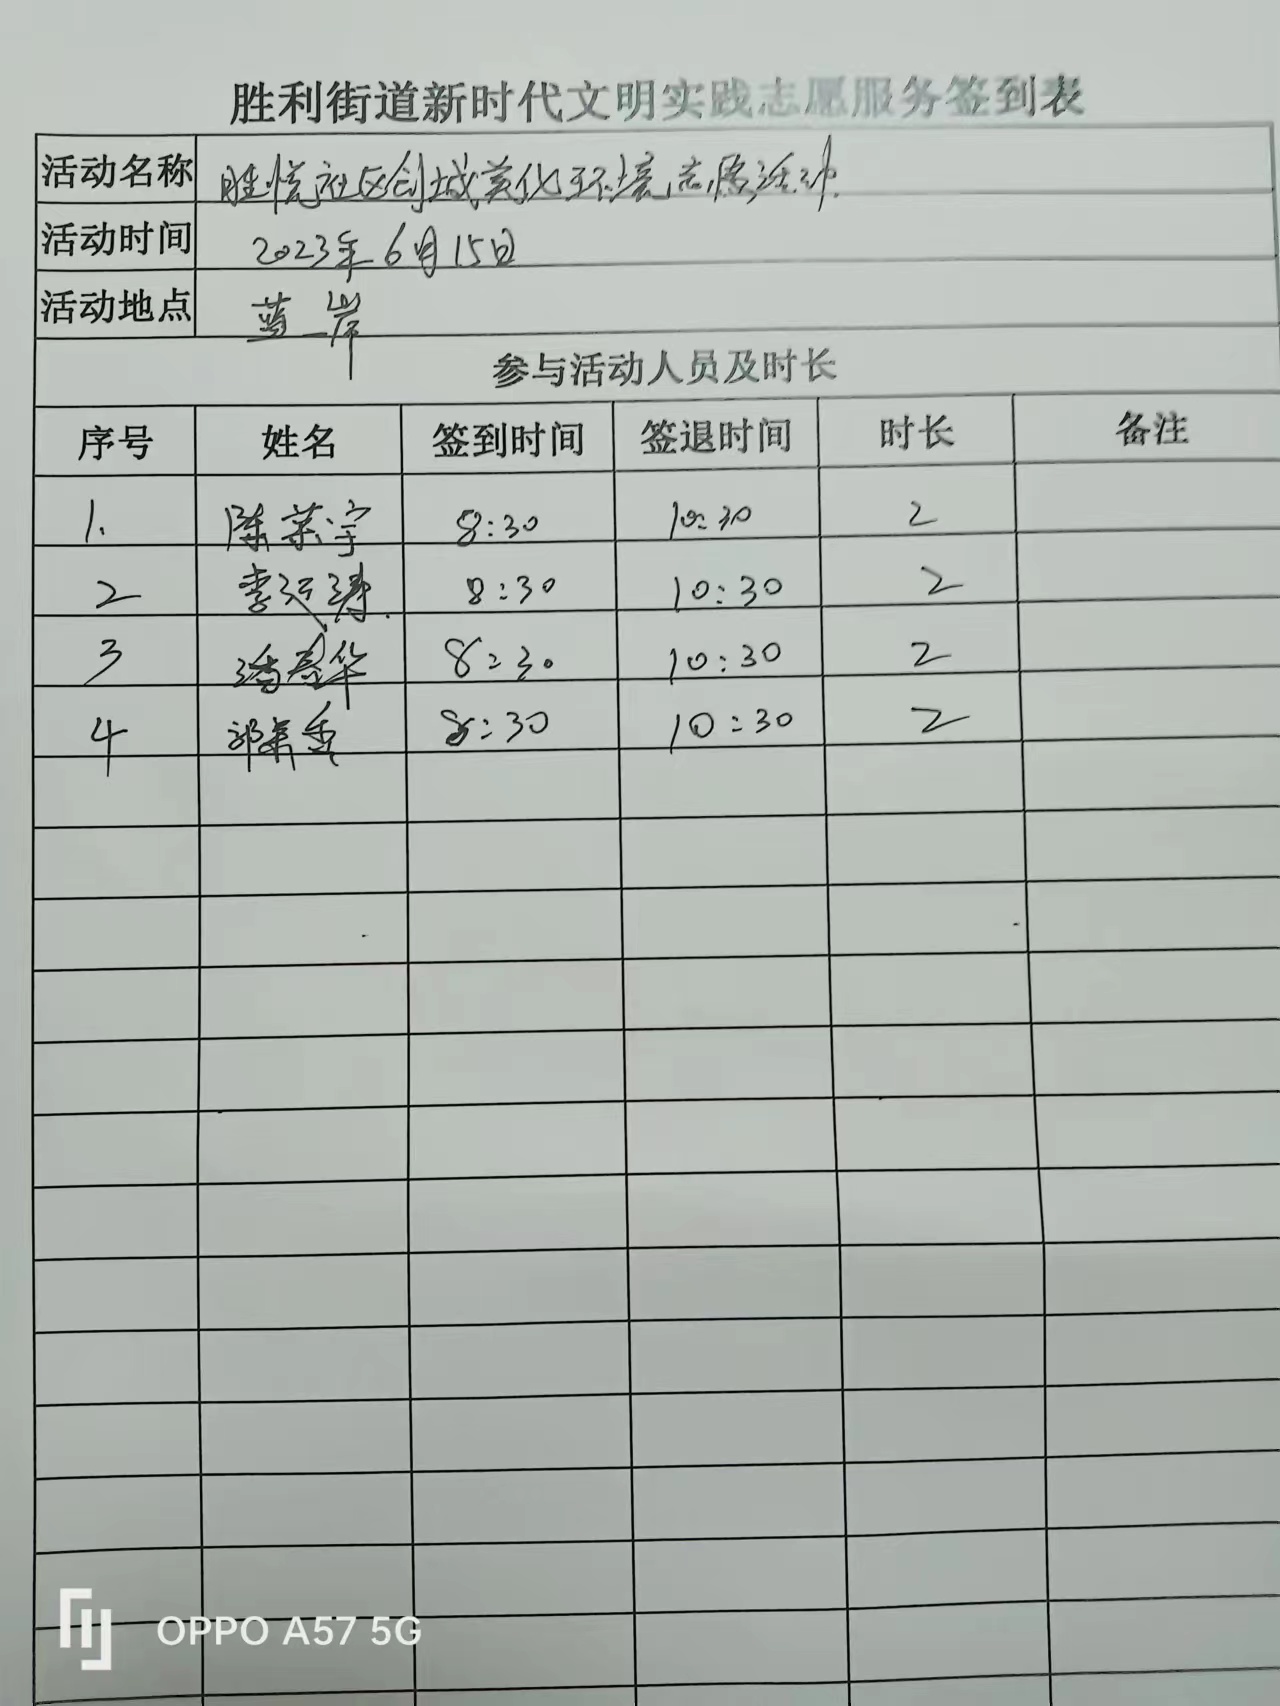 胜利街道新时代文明实践志愿服务签到表
活动名称 胜悦社区创城美化环境志愿活动
活动时间 2023年6月15日
活动地点 蓝岸
参与活动人员及时长
序号 姓名 签到时间 签退时间 时长 备注
1. 陈荣宇 8:30 10:30 2
2 李 涛 8:30 10:30 2
3 潘 华 8:30 10:30 2
4 8:30 10:30 2
OPPO A57 5G